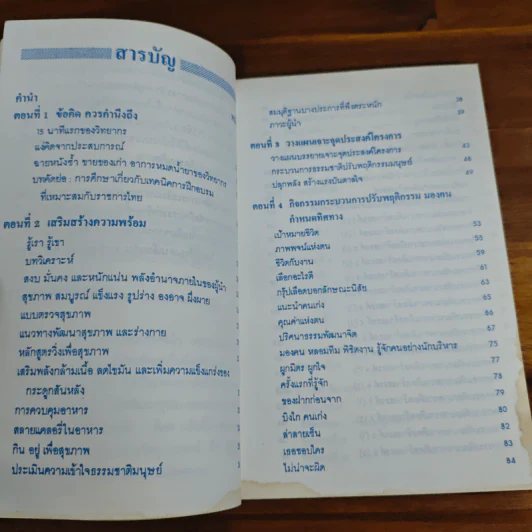 สารบัญ
คำนำ
ตอนที่ 1 ข้อคิด ควรคำนึงถึง
15 นาทีแรกของวิทยากร
แง่คิดจากประสบการณ์
ฉายหนังซ้ำ ขายของเก่า อาการหมดน้ำยาของวิทยากร
บทคัดย่อ : การศึกษาเกี่ยวกับเทคนิคการฝึกอบรม
ที่เหมาะสมกับราชการไทย
ตอนที่ 2 เสริมสร้างความพร้อม
รู้เรา รู้เขา
บทวิเคราะห์
สงบ มั่นคง และหนักแน่น พลังอำนาจภายในของผู้นำ
สุขภาพ สมบูรณ์ แข็งแรง รูปร่าง องอาจ ผึ่งผาย
แบบตรวจสุขภาพ
แนวทางพัฒนาสุขภาพ และร่างกาย
หลักสูตรวิ่งเพื่อสุขภาพ
เสริมพลังกล้ามเนื้อ ลดไขมัน และเพิ่มความแข็งแกร่งของ
กระดูกสันหลัง
การควบคุมอาหาร
สลายแคลอรี่ในอาหาร
กิน อยู่ เพื่อสุขภาพ
ประเมินความเข้าใจธรรมชาติมนุษย์
สมมุติฐานบางประการที่พึงตระหนัก 38
ภาวะผู้นำ 39
ตอนที่ 3 วางแผนเจาะจุดประสงค์โครงการ
วางแผนบรรยายเจาะจุดประสงค์โครงการ 43
กระบวนการธรรมชาติปรับพฤติกรรมมนุษย์ 47
ปลุกพลัง สร้างแรงบันดาลใจ
ตอนที่ 4 กิจกรรมกระบวนการปรับพฤติกรรม มองตน
กำหนดทิศทาง
เป้าหมายชีวิต 53
ภาพพจน์แห่งตน 55
ชีวิตกับงาน 59
เลือกอะไรดี 61
กรุ๊ปเลือดบอกลักษณะนิสัย 63
แนะนำคนเก่ง 64
คุณค่าแห่งตน 65
ปริศนาธรรมพัฒนาจิต 67
มองคน หลอมทีม พิชิตงาน รู้จักคนอย่างนักบริหาร 75
ผูกมิตร ผูกใจ 77
ครั้งแรกที่รู้จัก 78
ของฝากก่อนจาก 79
บิงโก คนเก่ง 80
ล่าลายเซ็น 82
เธอชอบใคร 83
ไม่น่าจะผิด 84